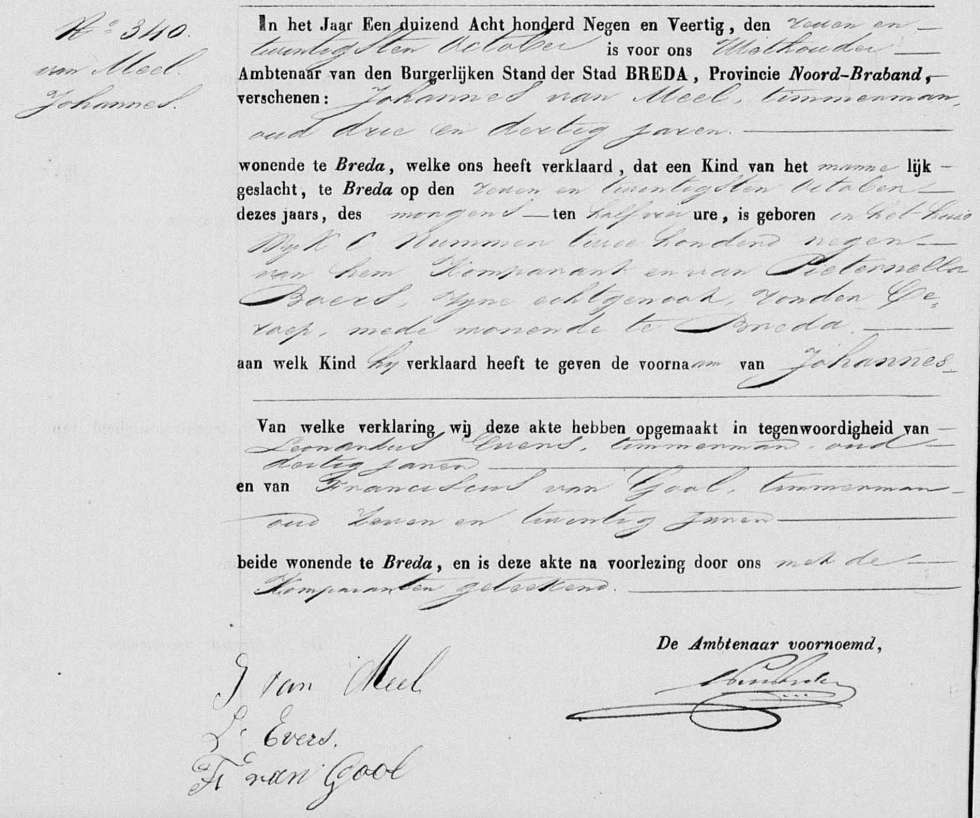 No 340.
van Meel.
Johannes.
In het Jaar Een duizend Acht honderd Negen en Veertig, den zeven en
twintigsten October is voor ons Wethouder
Ambtenaar van den Burgerlijken Stand der Stad BREDA, Provincie Noord-Braband,
verschenen: Johannes van Meel, timmerman,
oud drie en dertig jaren.
wonende te Breda, welke ons heeft verklaard, dat een Kind van het manne lijk
geslacht, te Breda op den zeven en twintigsten October
dezes jaars, des morgens ten half vier ure, is geboren in het huis
Wijk C Nummer twee honderd negen
van hem Komparant en van Pieternella
Boers, zyne echtgenoot, zonder Be-
roep, mede wonende te Breda.
aan welk Kind hy verklaard heeft te geven de voornaam van Johannes
Van welke verklaring wij deze akte hebben opgemaakt in tegenwoordigheid van
Leonardus Evers, timmerman, oud
dertig jaren
en van Franciscus van Gool, timmerman
oud zeven en twintig jaren
beide wonende te Breda, en is deze akte na voorlezing door ons met de
Komparanten geteekend.
De Ambtenaar voornoemd,
J van Meel
L. Evers.
F. van Gool